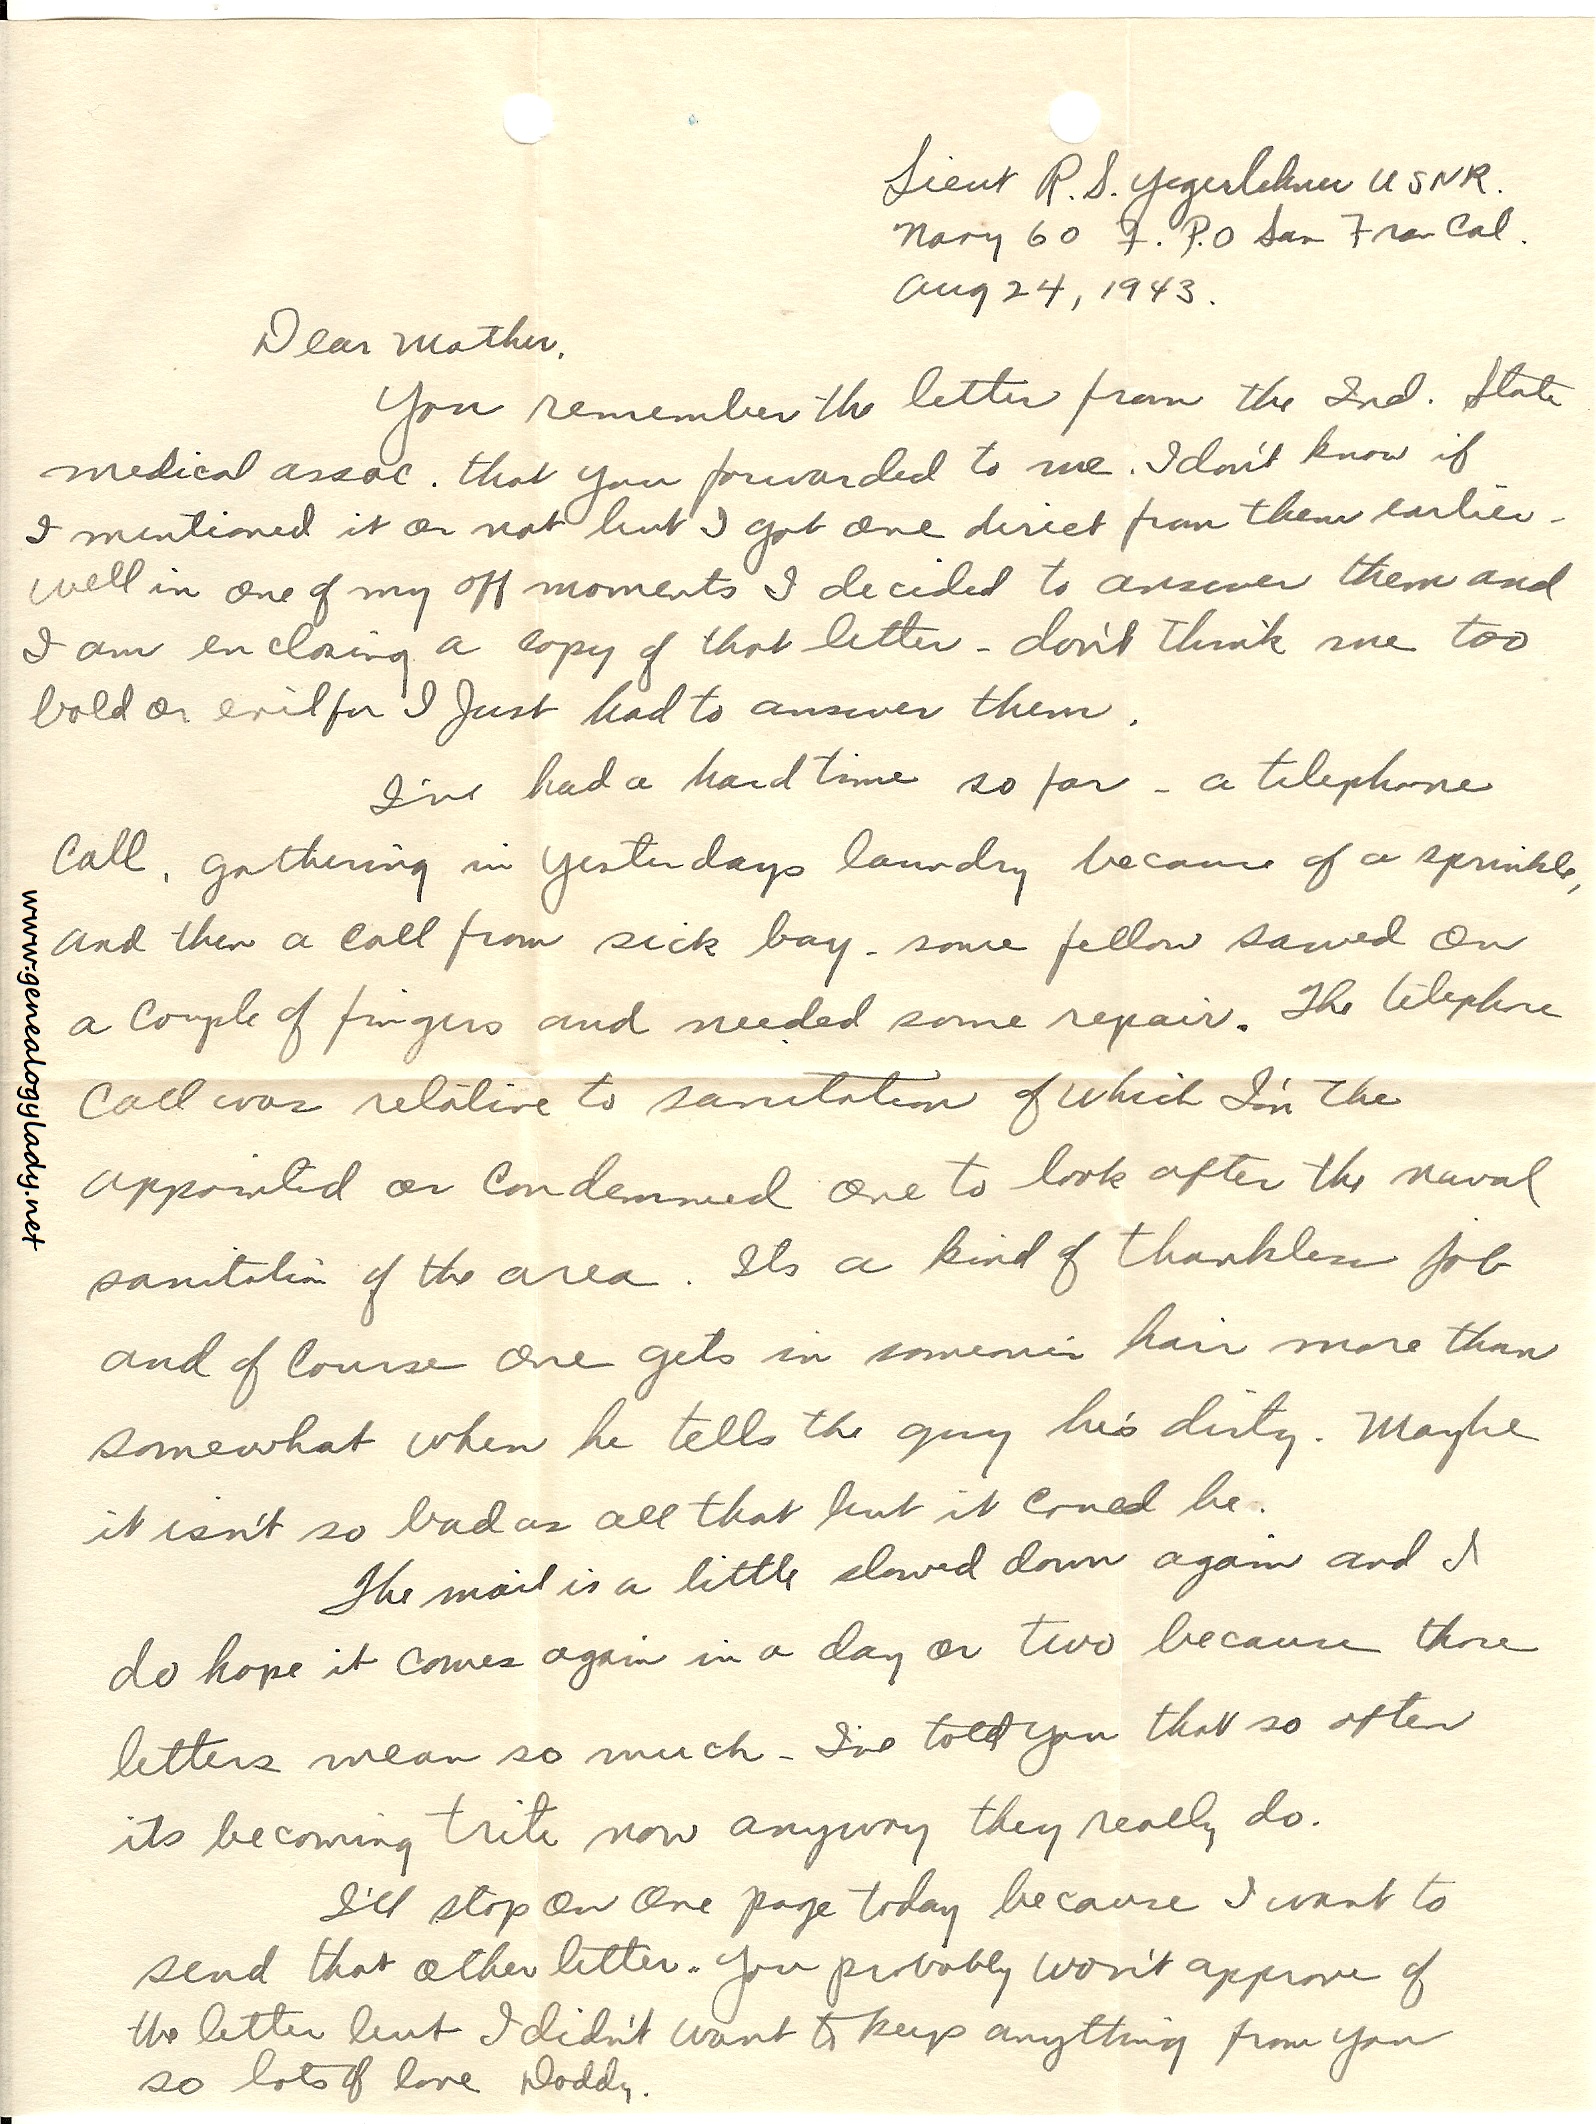 Lieut R. S. Yegerlehner USNR.
Navy 60 F. P.O San Fran Cal.
Aug 24, 1943.
Dear Mother,
You remember the letter from the Ind. State
medical assoc. that you forwarded to me. I don't know if
I mentioned it or not but I got one direct from them earlier -
well in one of my off moments I decided to answer them and
I am enclosing a copy of that letter - don't think me too
bold or evil for I Just had to answer them.
I've had a hard time so far - a telephone
Call, gathering in yesterdays laundry because of a sprinkle,
and then a call from sick bay - some fellow sawed on
a couple of fingers and needed some repair. The telephone
Call was relative to sanitation of which I'm the
appointed or condemned one to look after the naval
sanitation of the area. Its a kind of thankless job
and of course one gets in someones hair more than
somewhat when he tells the guy he's dirty. Maybe
it isn't so bad as all that but it could be.
The mail is a little slowed down again and I
do hope it comes again in a day or two because those
letters mean so much - I've told you that so often
its becoming trite now anyway they really do.
I'll stop on one page today because I want to
send that other letter. You probably won't approve of
the letter but I didn't want to keep anything from you
so lots of love Daddy.
www.genealogylady.net